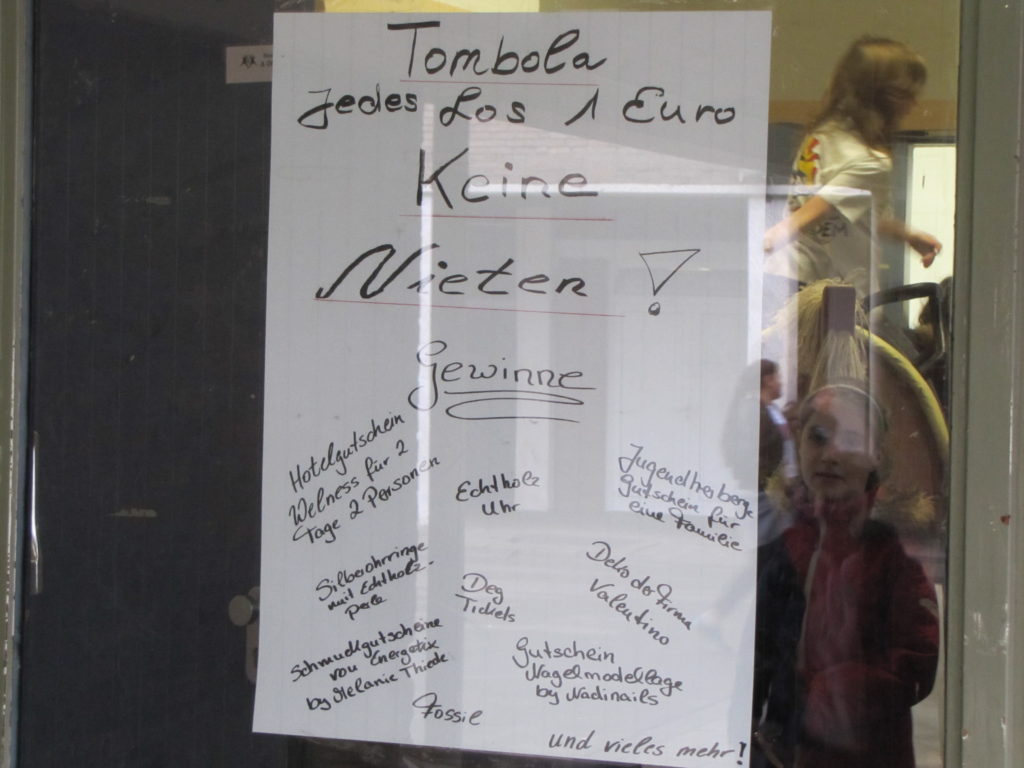 Tombola
Jedes Los 1 Euro
Keine
Nieten !
Gewinne
Hotelgutschein
Welness für 2
Tage 2 Personen
Echtholz
Uhr
Jugendherberge
Gutschein für
eine Familie
Silberohrringe
mit Echtholz-
perle
Deg
Tickets
Deko der Firma
Valentino
Schmuckgutscheine
von Energetix
by Melanie Thiede
Gutschein
Nagelmodellage
by Nadinails
Fossil
und vieles mehr!